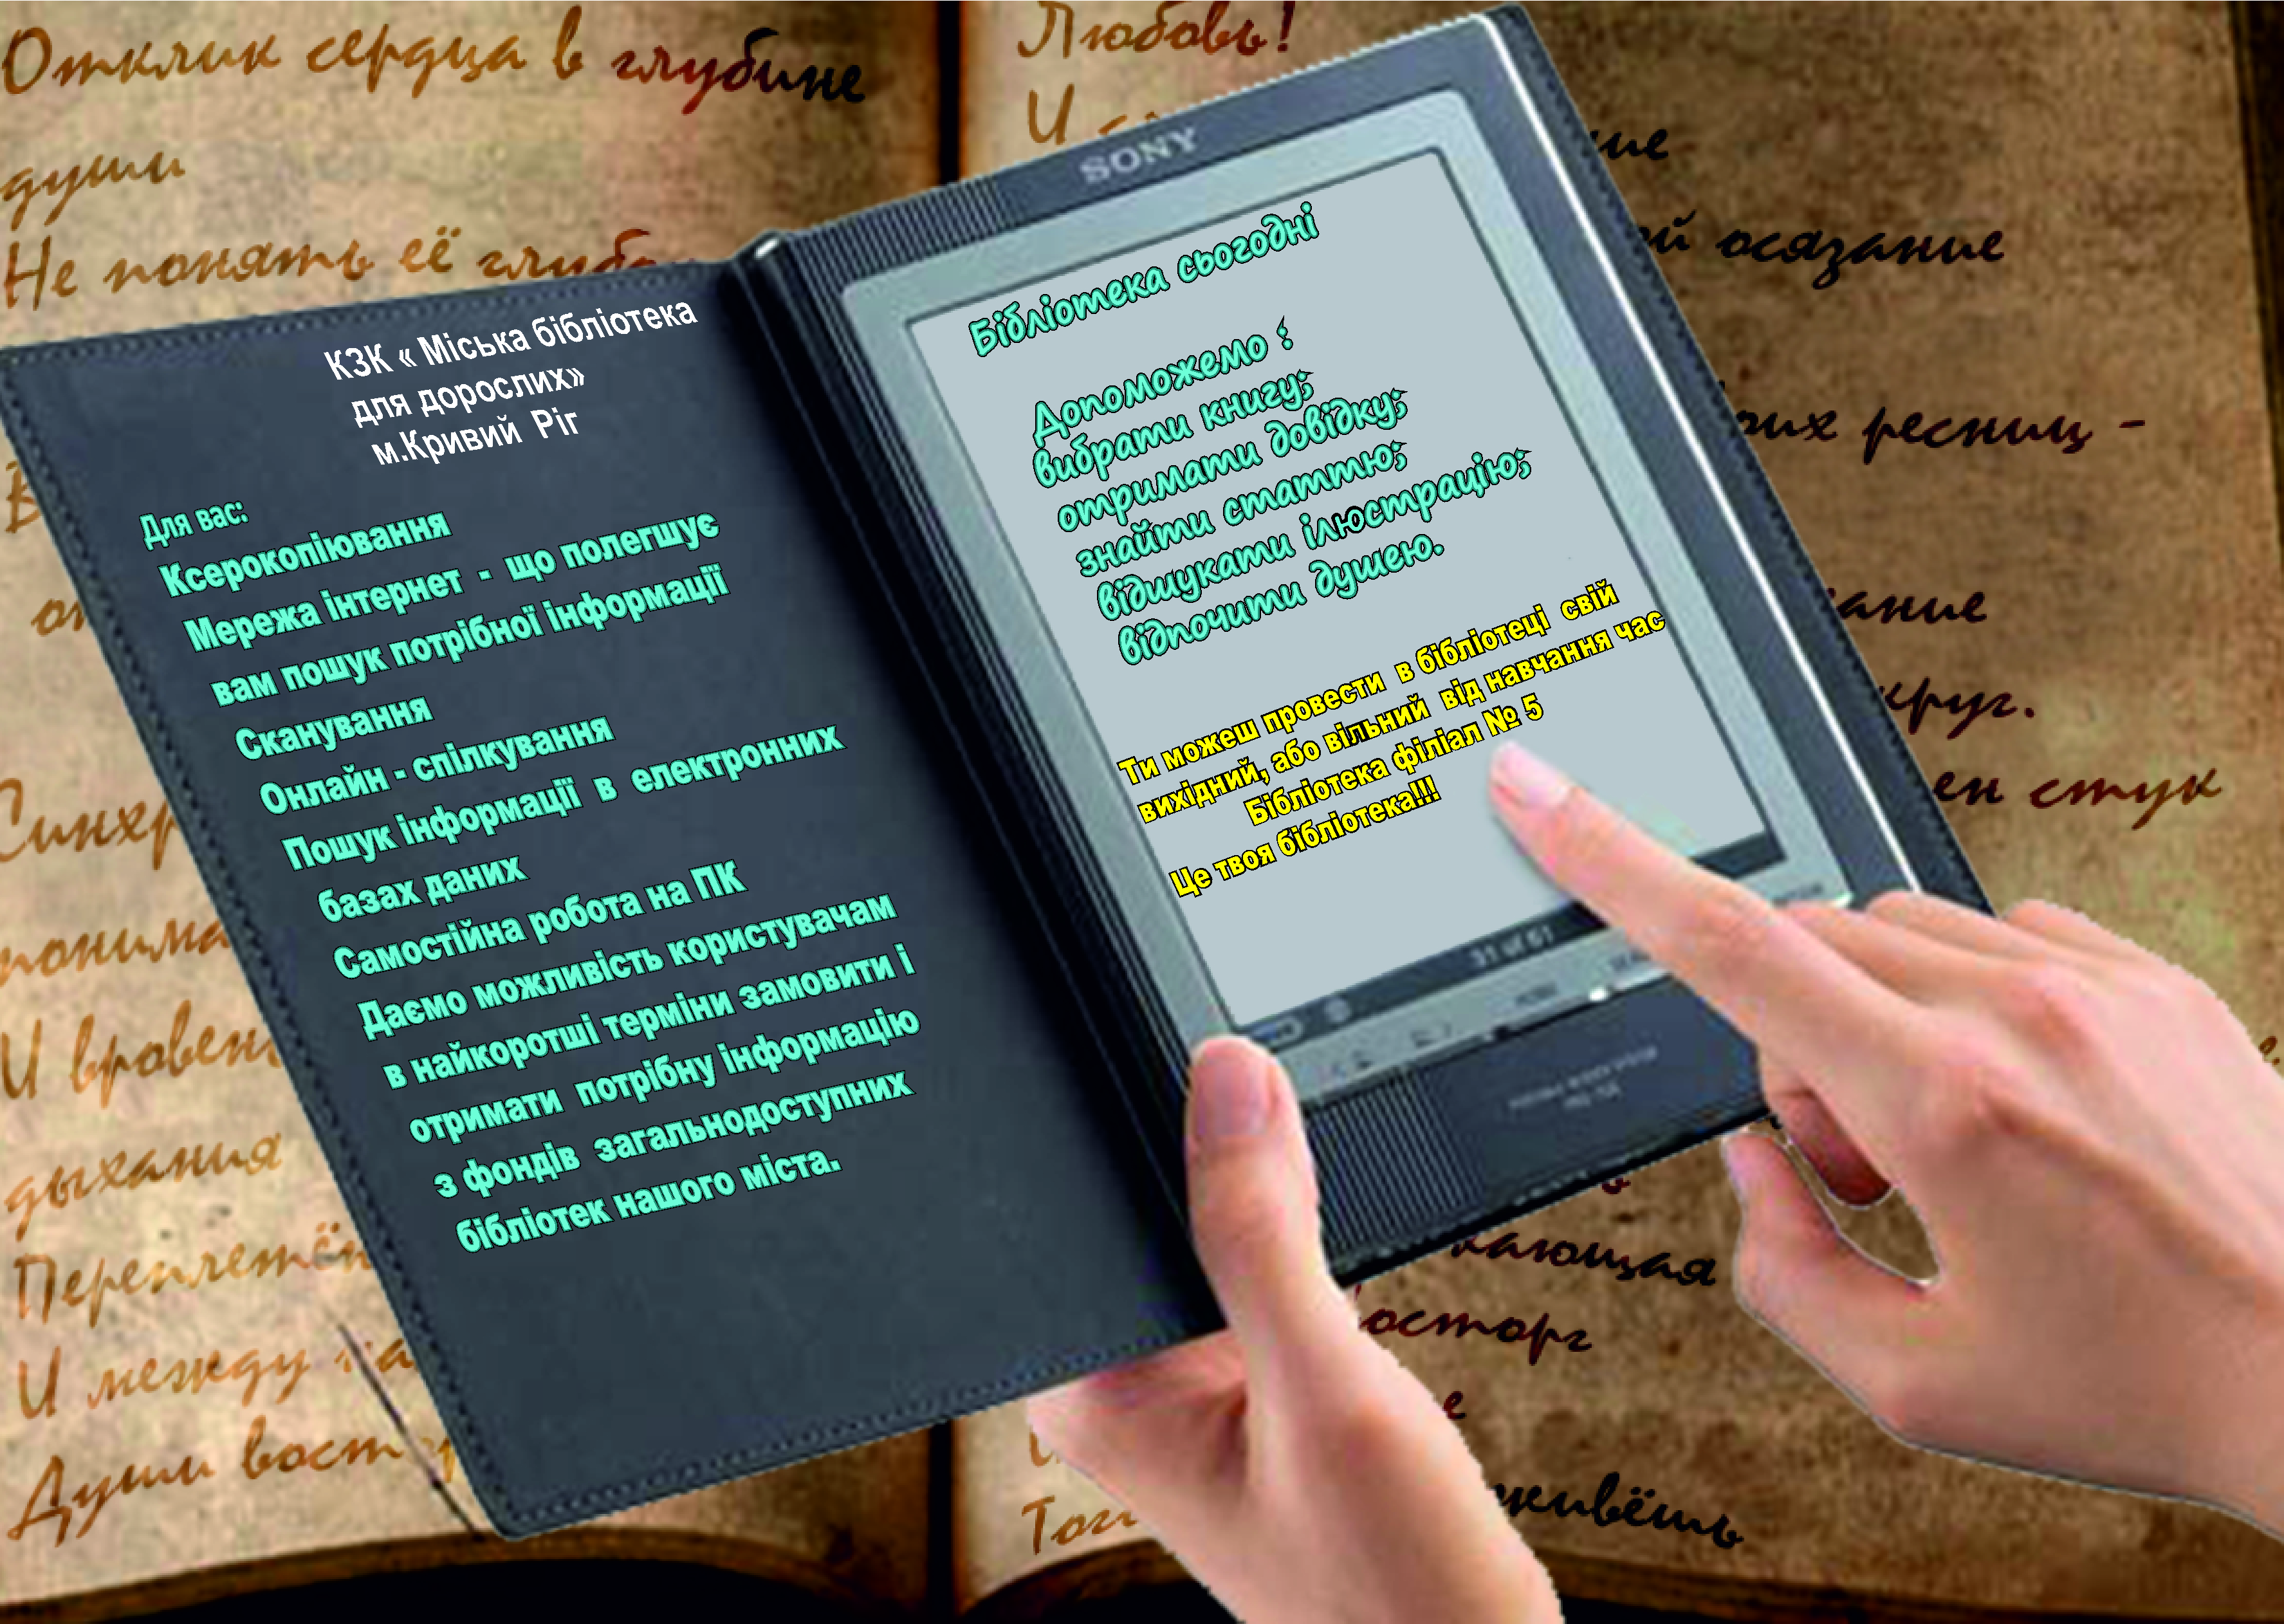 Отклик сердца в глубине
души
Не понять её
понима
И вровень
дыхания
И между
Души
Любовь!
И
осязание
ресниц -
круг.
стук
КЗК « Міська бібліотека
для дорослих»
м.Кривий Ріг
Для вас:
Ксерокопіювання
Мережа інтернет - що полегшує
вам пошук потрібної інформації
Сканування
Онлайн - спілкування
Пошук інформації в електронних
базах даних
Самостійна робота на ПК
Даємо можливість користувачам
в найкоротші терміни замовити і
отримати потрібну інформацію
з фондів загальнодоступних
бібліотек нашого міста.
SONY
Бібліотека сьогодні
Допоможемо :
вибрати книгу;
отримати довідку;
знайти статтю;
відшукати ілюстрацію;
відпочити душею.
Ти можеш провести в бібліотеці свій
вихідний, або вільний від навчання час
Бібліотека філіал № 5
Це твоя бібліотека!!!
31 of 61